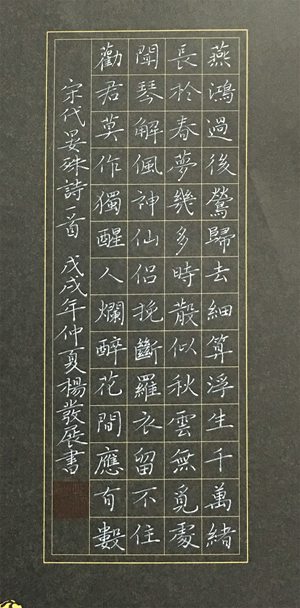 燕鴻過後鶯歸去細算浮生千萬緒
長於春夢幾多時散似秋雲無覓處
聞琴解佩神仙侶挽斷羅衣留不住
勸君莫作獨醒人爛醉花間應有數
宋代晏殊詩一首 戊戌年仲夏楊發展書